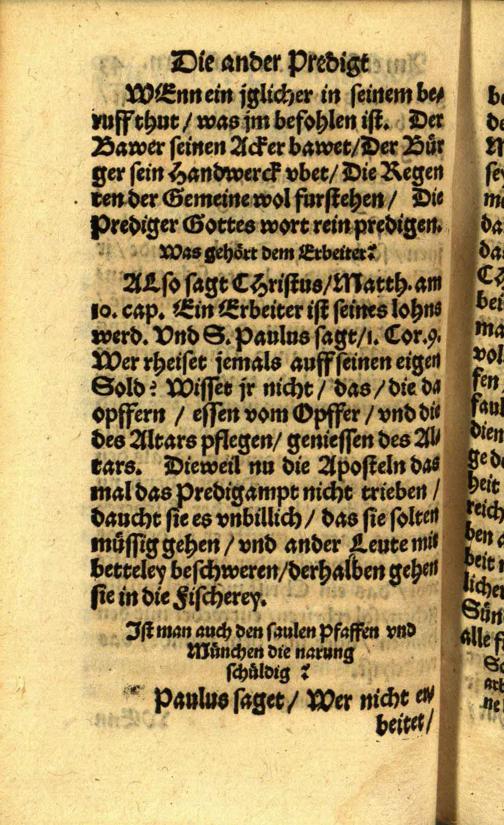 Die ander Predigt
WEnn ein jglicher in seinem be⸗
ruff thut / was jm befohlen ist. Der
Bawer seinen Acker bawet/Der Bür
ger sein Handwerck vbet/ Die Regen
ten der Gemeine wol furstehen / Die
Prediger Gottes wort rein predigen.
Was gehört dem Erbeiter?
ALso sagt CHristus/Matth. am
10. cap. Ein Erbeiter ist seines lohns
werd. Vnd S. Paulus sagt/1. Cor.9.
Wer rheiset jemals auff seinen eigen
Sold? Wisset jr nicht / das / die da
opffern / essen vom Opffer / vnd die
des Altars pflegen/ geniessen des Al⸗
tars. Dieweil nu die Aposteln das
mal das Predigampt nicht trieben /
daucht sie es vnbillich / das sie solten
müssig gehen / vnd ander Leute mit
betteley beschweren/derhalben gehen
sie in die Fischerey.
Ist man auch den faulen Pfaffen vnd
München die narung
schüldig ?
Paulus saget / Wer nicht er⸗
beitet/